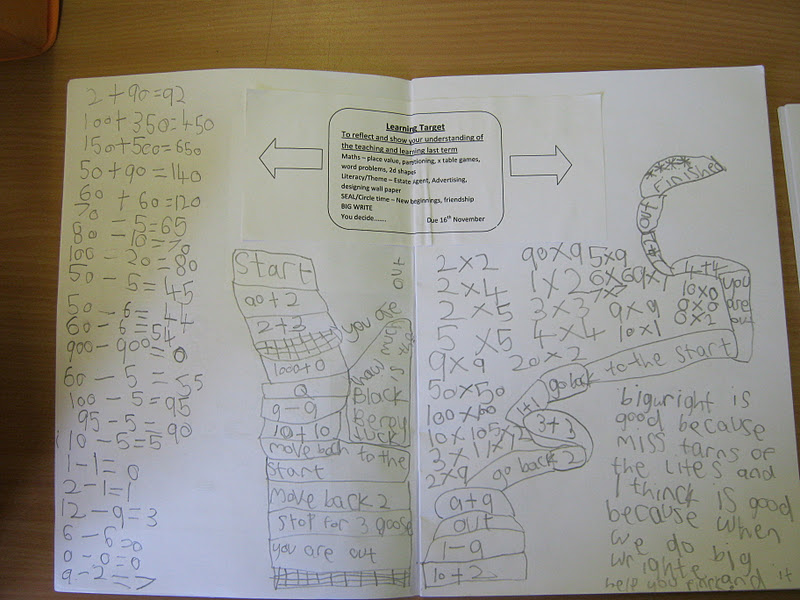 2 + 90 = 92
100 + 350 = 450
150 + 500 = 650
50 + 90 = 140
60 + 60 = 120
70 - 5 = 65
80 - 10 = 70
100 - 20 = 80
50 - 5 = 45
50 - 6 = 44
60 - 6 = 54
900 - 900 = 0
60 - 5 = 55
100 - 5 = 95
95 - 5 = 90
10 - 5 = 5
1 - 1 = 0
2 - 1 = 1
12 - 9 = 3
6 - 6 = 0
0 - 0 = 0
9 - 2 = 7
Learning Target
To reflect and show your understanding of
the teaching and learning last term
Maths – place value, partitioning, x table games,
word problems, 2d shapes
Literacy/Theme – Estate agent, Advertising,
designing wall paper
SEAL/Circle time – New beginnings, friendship
BIG WRITE
You decide....... Due 16th November
Start
90 + 2
2 + 3
1000 + 0
9 - 9
10 + 10
move back to the
Start
move back 2
Stop for 3 goose
you are out
you are
out
how much
is
Black
Berry
lucky
2 x 2
2 x 4
2 x 5
5 x 5
9 x 9
50 x 50
100 x
10 x 10
2 x 9
90 x 9
1 x 2
3 x 3
4 x 4
20 x 2
5 x 9
9 x 9
10 x 1
4 + 4
10 x 0
8 x 0
8 x 2
you
are
out
out
Finished
to the start
go back
1 + 1
3 + 3
go back 2
9 + 9
out
1 - 9
10 + 2
big wright is
good because
miss tarns of
the lites and
I thinck is good
because when
we do
wright big
help you and it